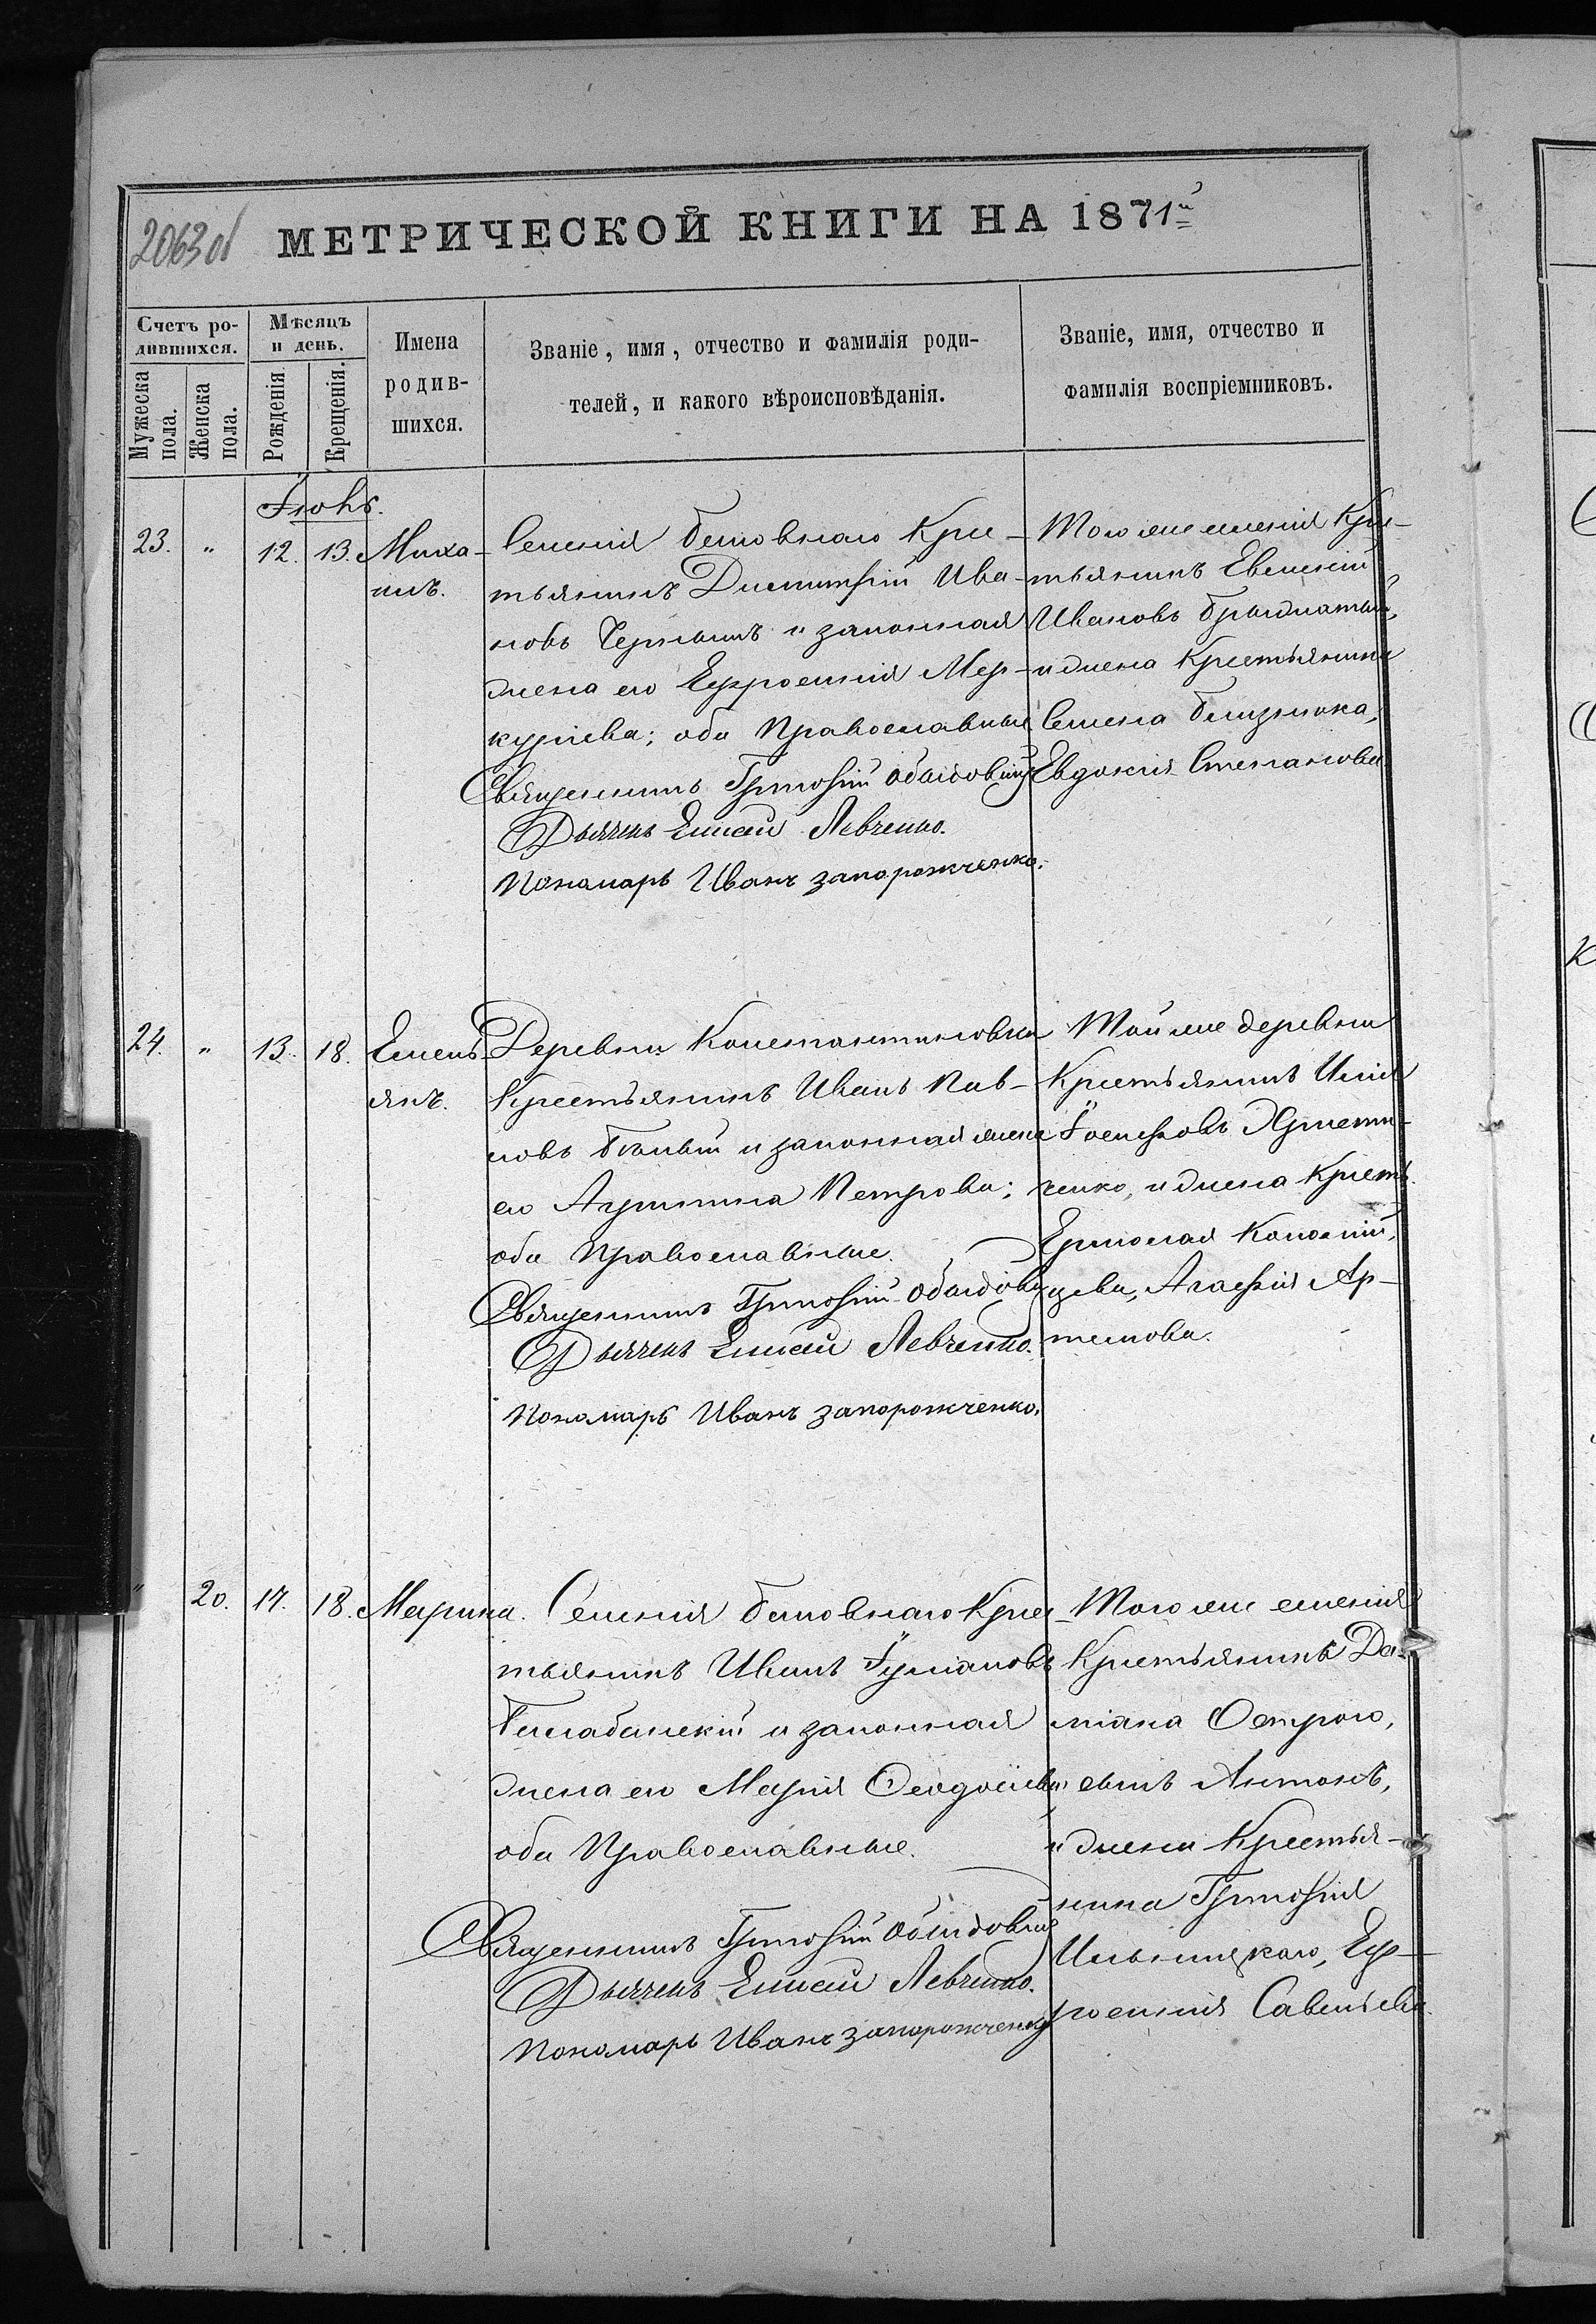 2063 об
МЕТРИЧЕСКОЙ КНИГИ НА 1871й
Счетъ ро-
дившихся.
Мужеска пола.
Женска пола.
Мѣсяцъ
и день.
Рожденія
Крещенія.
Имена
родив-
шихся.
Званіе, имя, отчество и фамилія роди-
телей, и какого вѣроисповѣданія.
Званіе, имя, отчество и
фамилія воспріемниковъ.
Іюнь.
23. " 12. 13. Миха-
илъ.
Селенія Кре-
стьянинъ Димитрій Ива-
новъ и законная
жена его Евфросинія Мер-
куріева; оба Православные
Священникъ Григорій
Дьячекъ Елисей Левченко.
Пономарь Иванъ Запорожченко.
Того же селенія Кре-
стьянинъ Евсевій
Ивановъ
и жена Крестьянина
Семена Близнюка,
Евдокія Степанова
24. " 13. 18. Емель-
янъ.
Деревни Константиновки
Крестьянинъ Иванъ Пав-
ловъ Бѣлый и законная жена
его Агриппина Петрова;
оба Православные.
Священникъ Григорій
Дьячекъ Елисей Левченко.
Пономарь Иванъ Запорожченко.
Той же деревни
Крестьянинъ Илія
Іосифовъ Христи-
ченко, и жена Крест.
Ермолая
Агафія Ар-
темова.
" 20. 17. 18. Марина.
Селенія Крес-
тьянинъ Иванъ Іуліановъ
и законная
жена его Марія Ѳеодосіева
оба Православные.
Священникъ Григорій
Дьячекъ Елисей Левченко.
Пономарь Иванъ Запорожченко
Того же селенія
Крестьянина Да-
міана Остраго,
сынъ Антонъ,
и жена Крестья-
нина Григорія
Ильницкаго, Евф-
росинія Савельева.